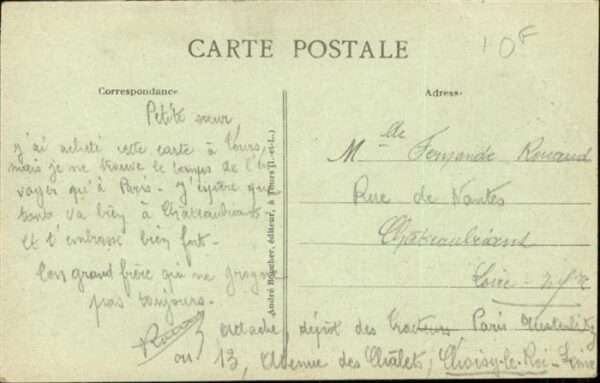 CARTE POSTALE
10F
Correspondance
Adresse
Petite sœur
j'ai acheté cette carte à Tours,
mais je ne trouve le temps de l'en
voyer qu'à Paris - J'espère que
tout va bien à Châteaubriant
et t'embrasse bien fort -
Ton grand frère qui ne grogne
pas toujours -
André Boucher, éditeur, à Tours (I.-et-L.)
Mlle Fernande Rouaud
Rue de Nantes
Châteaubriant
Loire - Infre
détaché, dépôt des tracteurs Paris Austerlitz
ou 13, Avenue des Châlets, Choisy-le-Roi - Seine